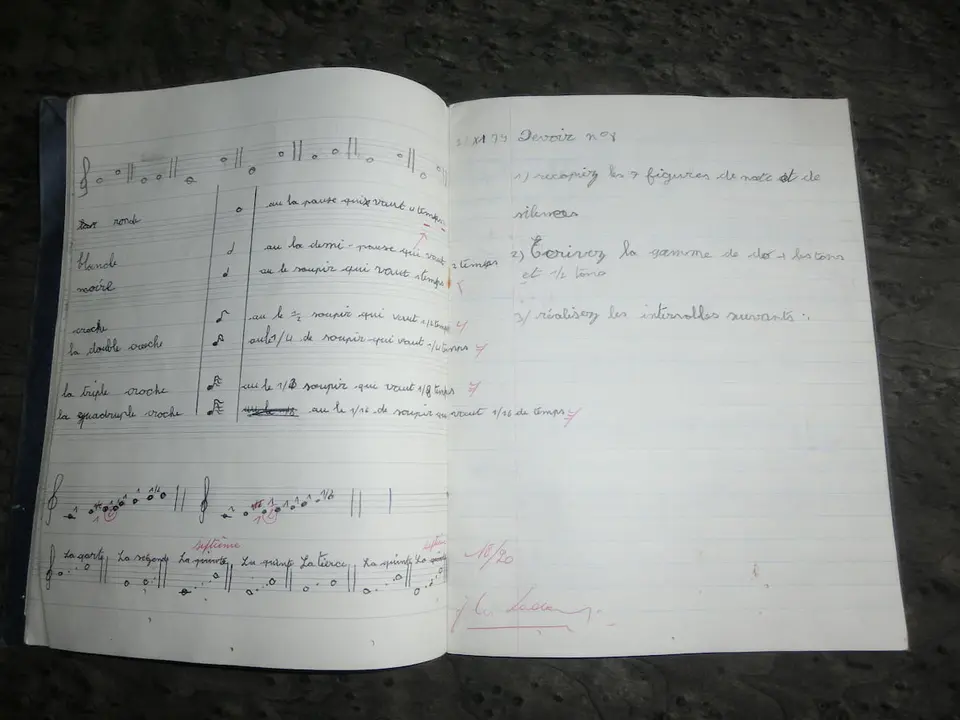 ronde au la pause qui vaut 4 temps
blanche au la demi-pause qui vaut 2 temps
noire au le soupir qui vaut 1 temps
croche au le 1/2 soupir qui vaut 1/2 temp
la double croche au le 1/4 de soupir qui vaut 1/4 temps
la triple croche au le 1/8 soupir qui vaut 1/8 temps
la quadruple croche au le 1/16 de soupir qui vaut 1/16 de temps
septième
La seconde La quinte La quinte La tierce La quinte
XI 79 Devoir n°
1) recopiez les 7 figures de note et de
silences
2) Ecrivez la gamme de do + les tons
et 1/2 tons
3) réalisez les intervalles suivants :
/20